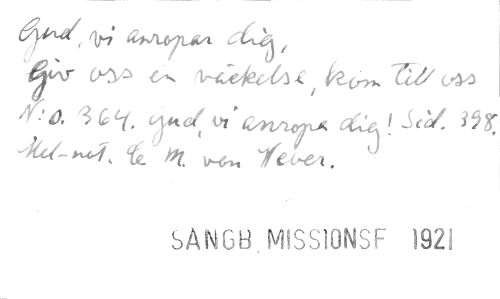 Gud, vi anropar dig,
Giv oss en väckelse, kom till oss
N:o. 364. Gud, vi anropa dig! Sid. 398.
Mel-not. C. M. von Weber.
SÅNGB. MISSIONSF 1921